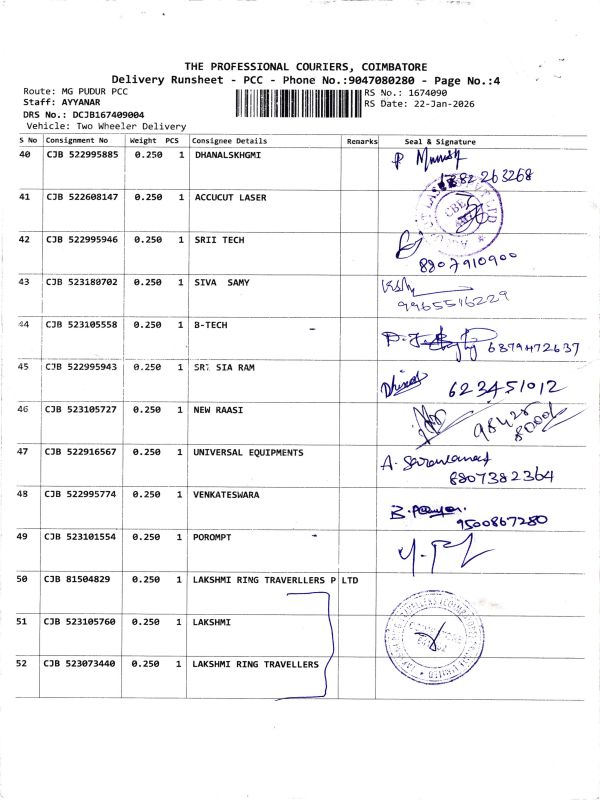 THE PROFESSIONAL COURIERS, COIMBATORE
Delivery Runsheet - PCC - Phone No.:9047080280 - Page No.:4
Route: MG PUDUR PCC
RS No.: 1674090
Staff: AYYANAR
RS Date: 22-Jan-2026
DRS No.: DCJB167409004
Vehicle: Two Wheeler Delivery
S No Consignment No Weight PCS Consignee Details Remarks Seal & Signature
40 CJB 522995885 0.250 1 DHANALSKHGMI
41 CJB 522608147 0.250 1 ACCUCUT LASER
42 CJB 522995946 0.250 1 SRII TECH
8807910900
43 CJB 523180702 0.250 1 SIVA SAMY
9965516229
44 CJB 523105558 0.250 1 B-TECH
6379472637
45 CJB 522995943 0.250 1 SRI SIA RAM
623451012
46 CJB 523105727 0.250 1 NEW RAASI
47 CJB 522916567 0.250 1 UNIVERSAL EQUIPMENTS
8807382364
48 CJB 522995774 0.250 1 VENKATESWARA
9500867280
49 CJB 523101554 0.250 1 POROMPT
50 CJB 81504829 0.250 1 LAKSHMI RING TRAVERLLERS P LTD
51 CJB 523105760 0.250 1 LAKSHMI
52 CJB 523073440 0.250 1 LAKSHMI RING TRAVELLERS